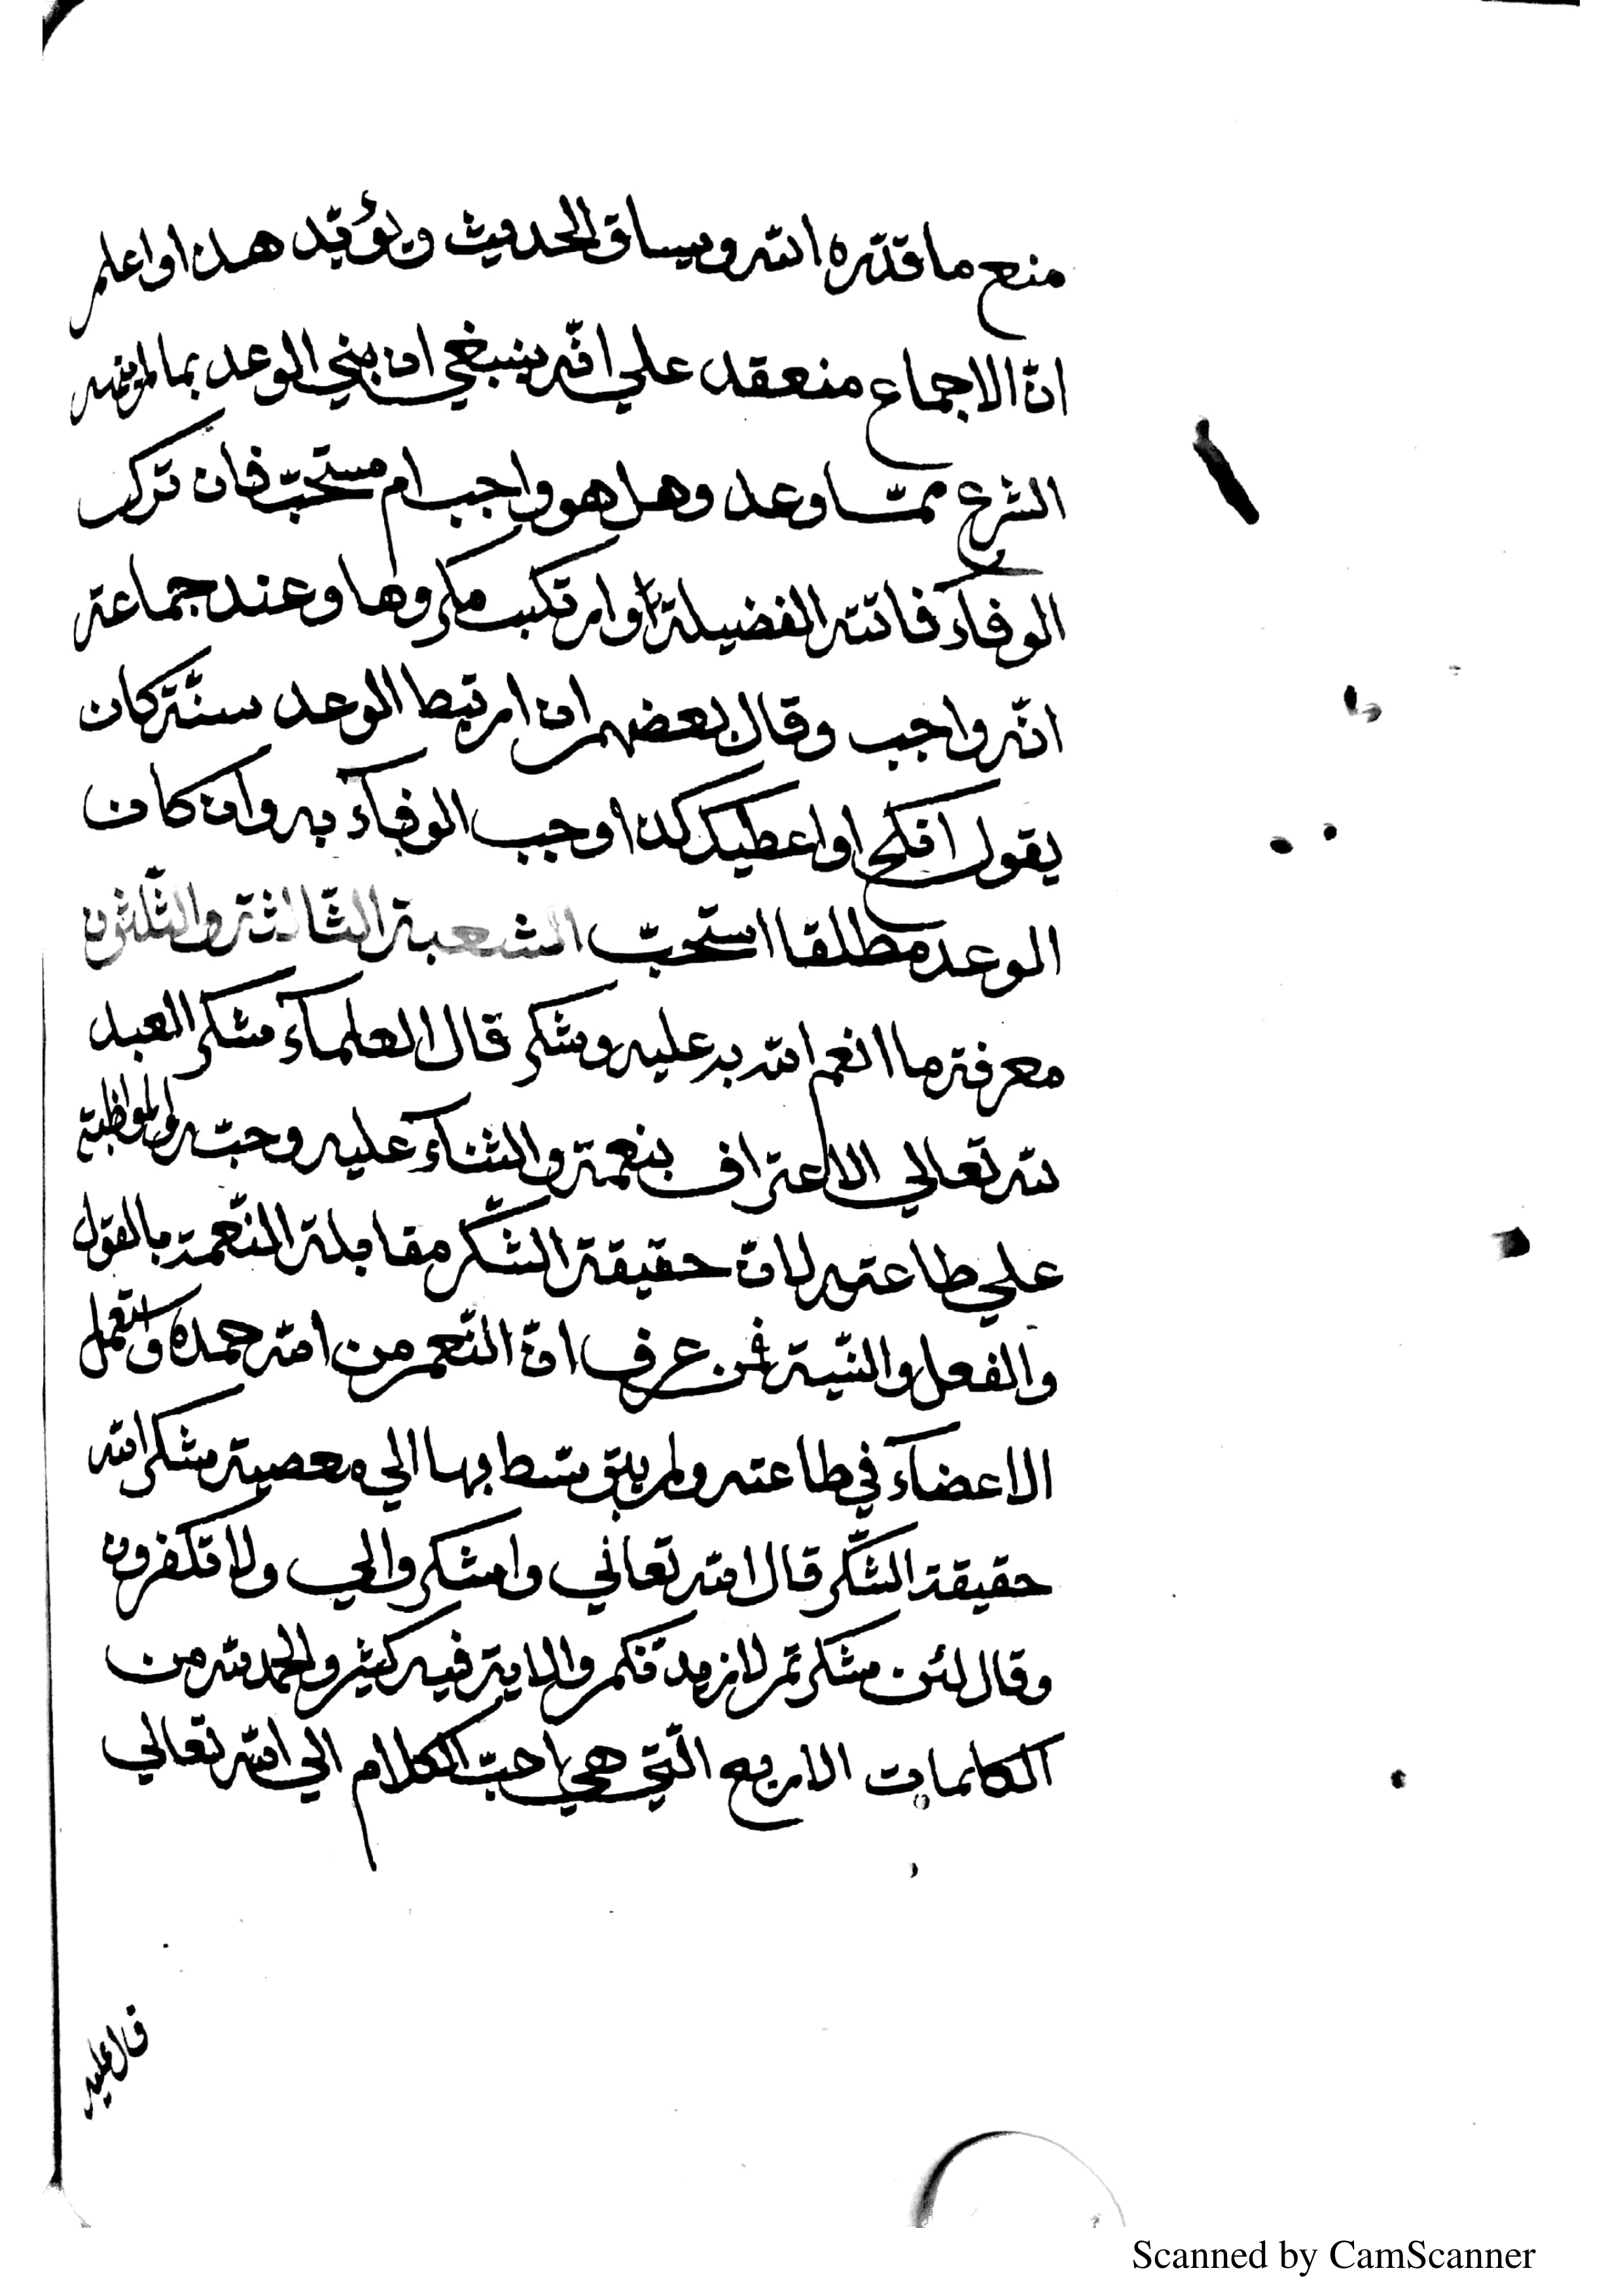 منع ما قدّره الله وسياق الحديث ويؤيّد هذا واعلم
انّ الاجماع منعقد علي انّه ينبغي ان يفي الوعد بما لم ينه
الشرع ممّا وعد وهل هو واجب ام مستحبّ فان ترك
الوفاء فاتته الفضيلة وارتكب مكروها وعند جماعة
انّه واجب وقال بعضهم ان ارتبط الوعد سنّة كان
يقول انكح اواعطيك كذا وجب الوفاء به وان كان
الوعد مطلقا استحبّ الشعبة الثّالثة والثّلثون
معرفة ما انعم الله به عليه وشكر قال العلماء شكر العبد
لله تعالي الاعتراف بنعمة والثناء عليه وحبّه والمواظبة
علي طاعته لانّ حقيقة الشّكر مقابلة النّعمة بالقول
والفعل والنّية فمن عرف انّ النّعم من الله حمده واستعمل
الاعضاء في طاعته ولم يتوسّط بها الي معصية شكر الله
حقيقة الشّكر قال الله تعالي واشكروا لي ولا تكفرون
وقال لئن شكرتم لازيدنّكم والاية فيه كثير والحمد لله من
الكلمات الاربع الّتي هي احبّ الكلام الي الله تعالي
قال عليه
Scanned by CamScanner